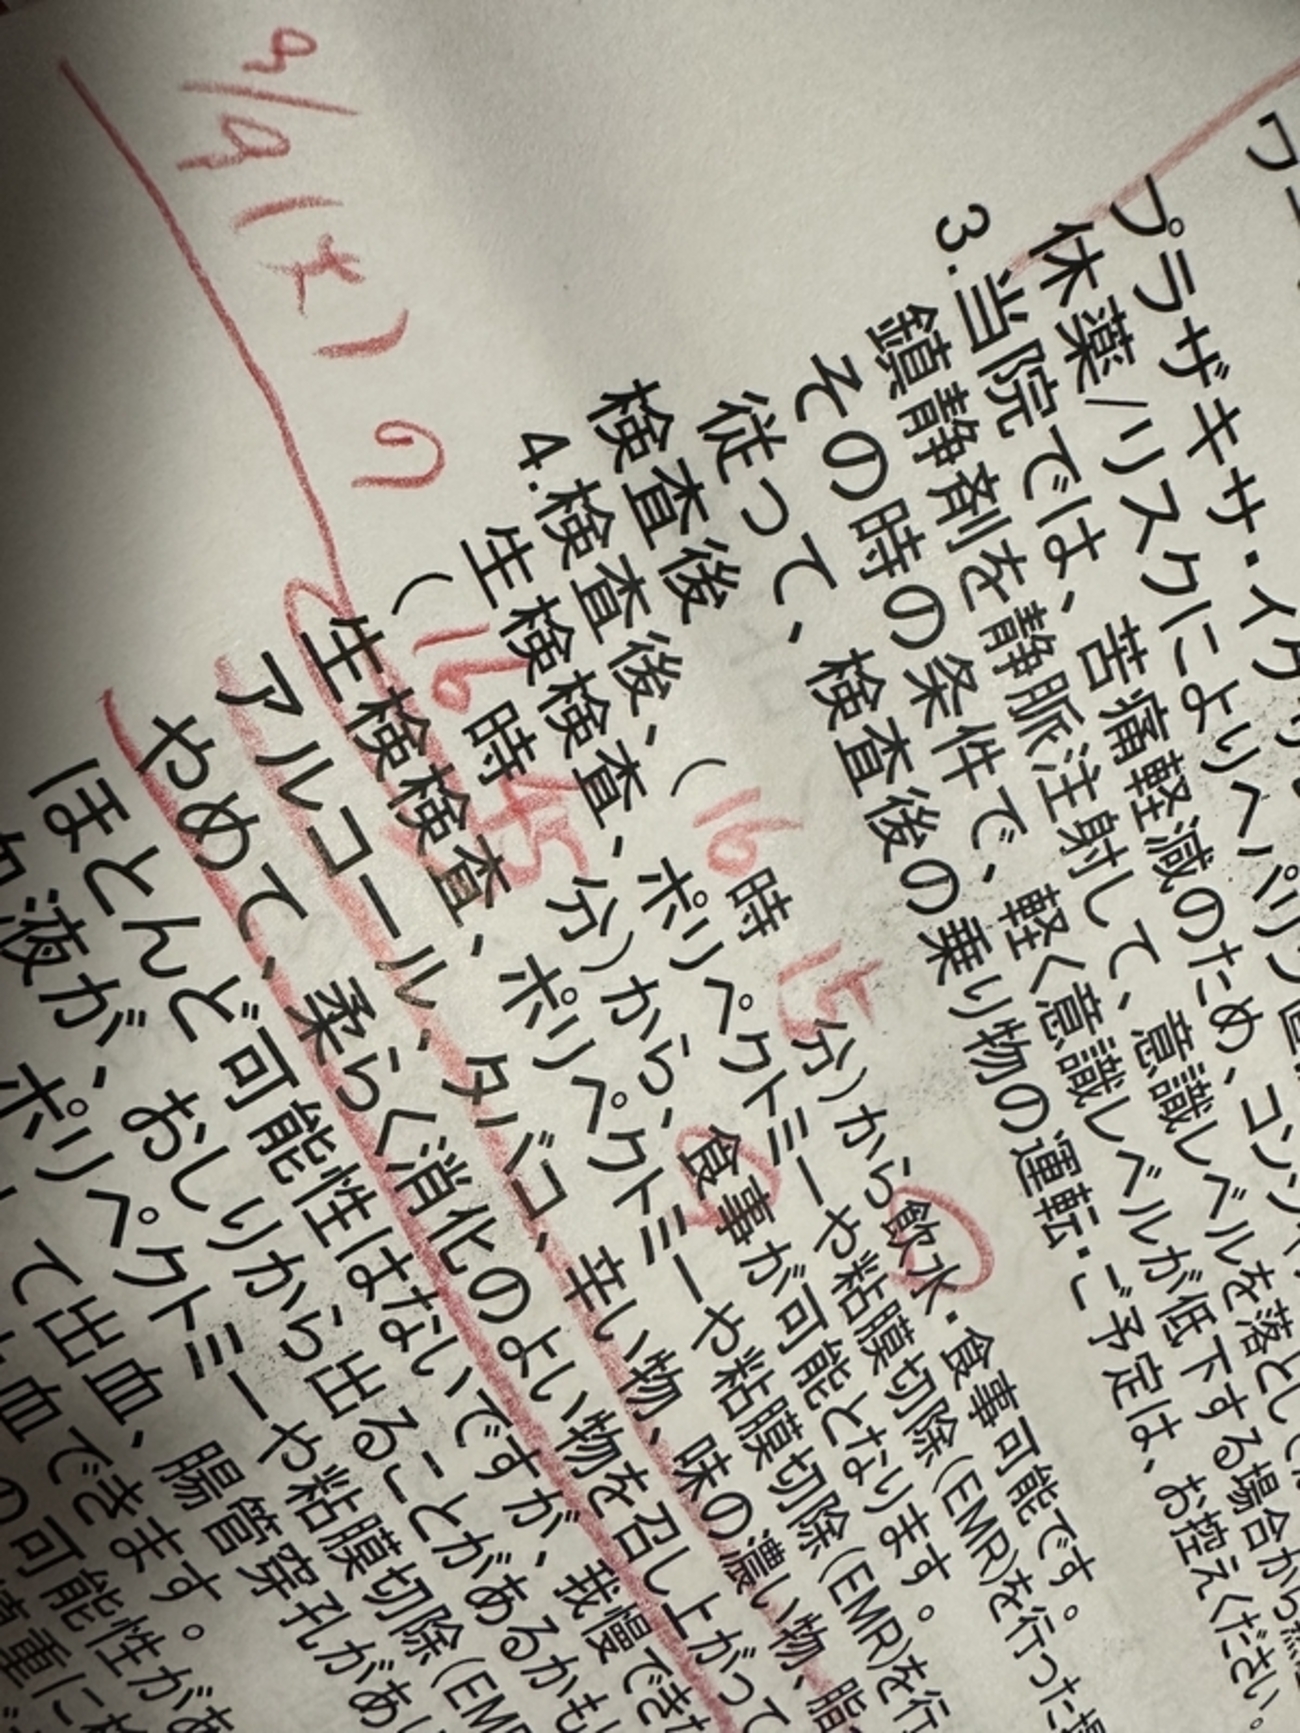 ワー
プラザキサ・イグザ
休薬/リスクによりヘパリン置
3.当院では、苦痛軽減のため、コン
鎮静剤を静脈注射して、意識レベルを落とし
その時の条件で、軽く意識レベルが低下する場合が
従って、検査後の乗り物の運転・ご予定は、お控えください。
検査後
4.検査後、(16時15分)から飲水・食事可能です。
生検検査、ポリペクトミーや粘膜切除(EMR)を行った
(16時45分)から、食事が可能となります。
生検検査、ポリペクトミーや粘膜切除(EMR)を行
アルコール、タバコ、辛い物、味の濃い物、脂
やめて、柔らく消化のよい物を召し上がって
ほとんど可能性はないですが、我慢でき
血液が、おしりから出ることがあるかも
ポリペクトミーや粘膜切除(EM
して出血、腸管穿孔があ
止血できます。
の可能性があ
慎重に検